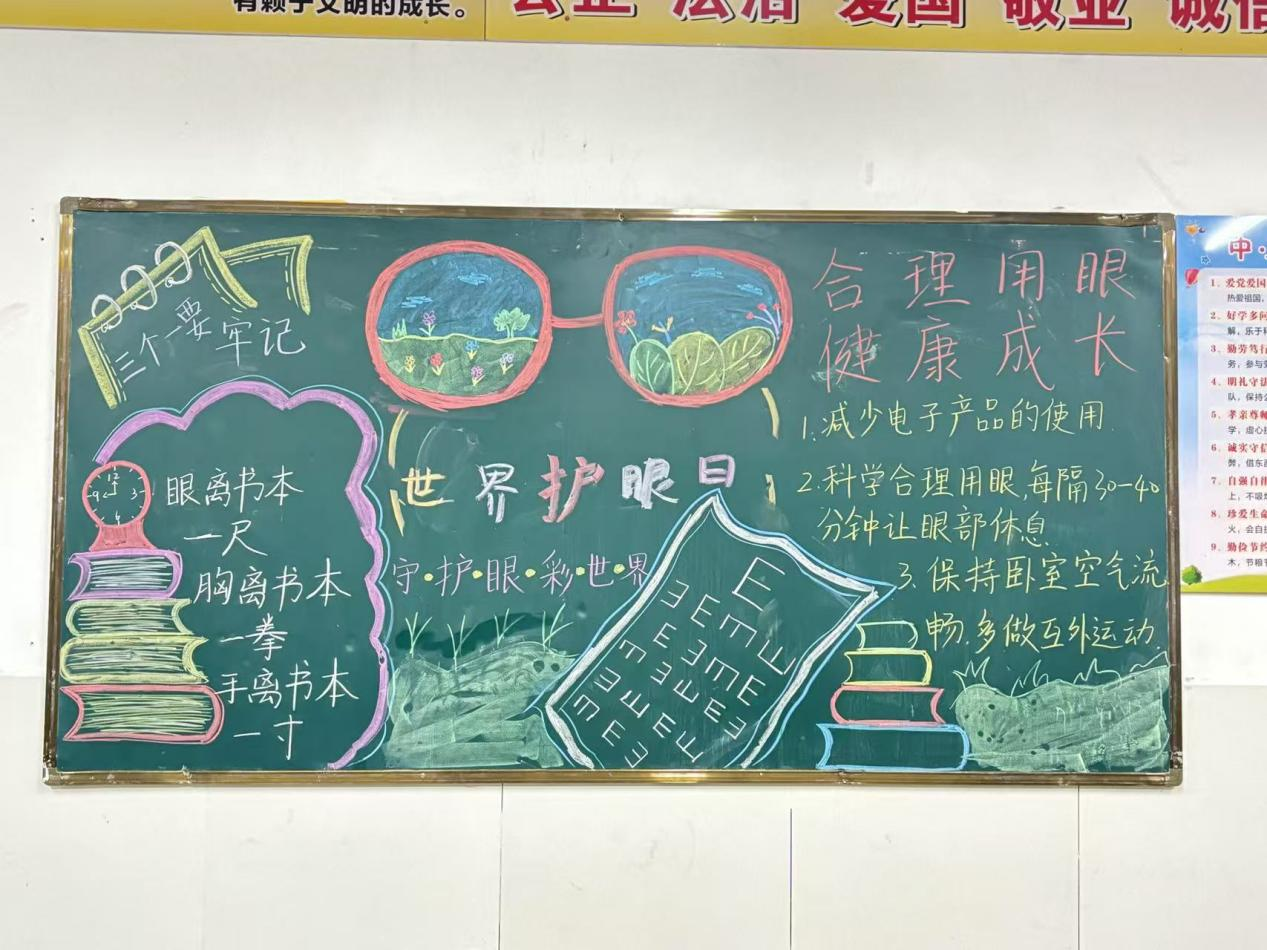 有颗子文明的成长。
公正 法治 爱国 敬业 诚信
三个一要牢记
眼离书本
一尺
胸离书本
一拳
手离书本
一寸
12
9
3
6
世界护眼日
守·护·眼·彩·世·界
E
E
E
合理用眼
健康成长
1.减少电子产品的使用.
2.科学合理用眼,每隔30-40
分钟让眼部休息.
3.保持卧室空气流
畅.多做互外运动.
中
1、爱党爱国
热爱祖国,
2、好学多问
解,乐于
3、勤劳笃行
务,参与
4、明礼守法
队,保持
5、孝亲尊师
学,虚心
6、诚实守信
弊,借东
7、自强自律
上,不吸
8、珍爱生命
火,会自
9、勤俭节约
木,节粮